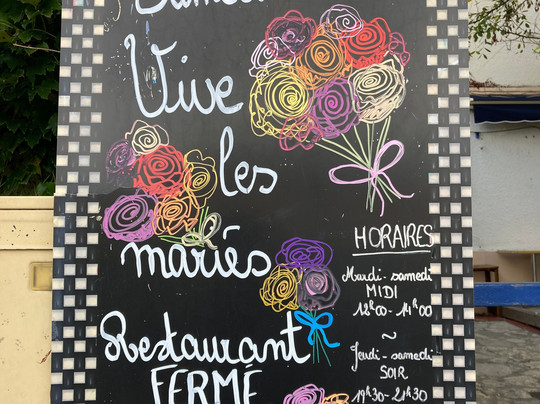 Samedi
Vive
les
mariés
Restaurant
FERMÉ
HORAIRES
Mardi - samedi
MIDI
12h00 - 14h00
~
Jeudi - samedi
SOIR
19h30 - 21h30